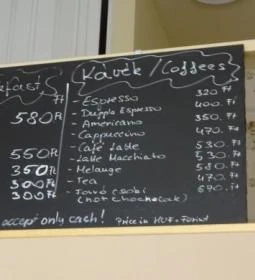 Kávék / Coffees
Ft
580 Ft
550 Ft
350 Ft
300 Ft
300 Ft
- Espresso 320 Ft
- Dupplo Espresso 400. Ft
- Americano 350. Ft
- Cappuccino 470. Ft
- Café Latte 530. Ft
- Latte Macchiato 530. Ft
- Melange 580. Ft
- Tea 470. Ft
- Forró csobi 690. Ft
(hot chocholak)
accept only cash! Price in HUF = Forint